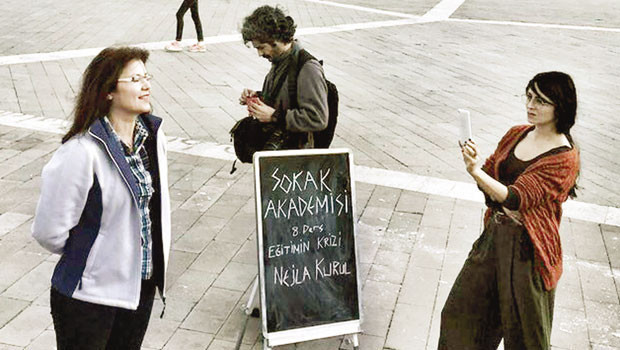 SOKAK
AKADEMİSİ
8 Ders
EĞİTİMİN KRİZİ
NEJLA KURUL